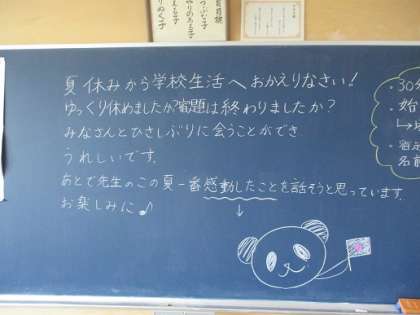 夏休みから学校生活へおかえりなさい!
ゆっくり休めましたか?宿題は終わりましたか?
みなさんとひさしぶりに会うことができ
うれしいです。
あとで先生のこの夏一番感動したことを話そうと思っています。
お楽しみに♪
↓
・30分
・始
・宿
名前